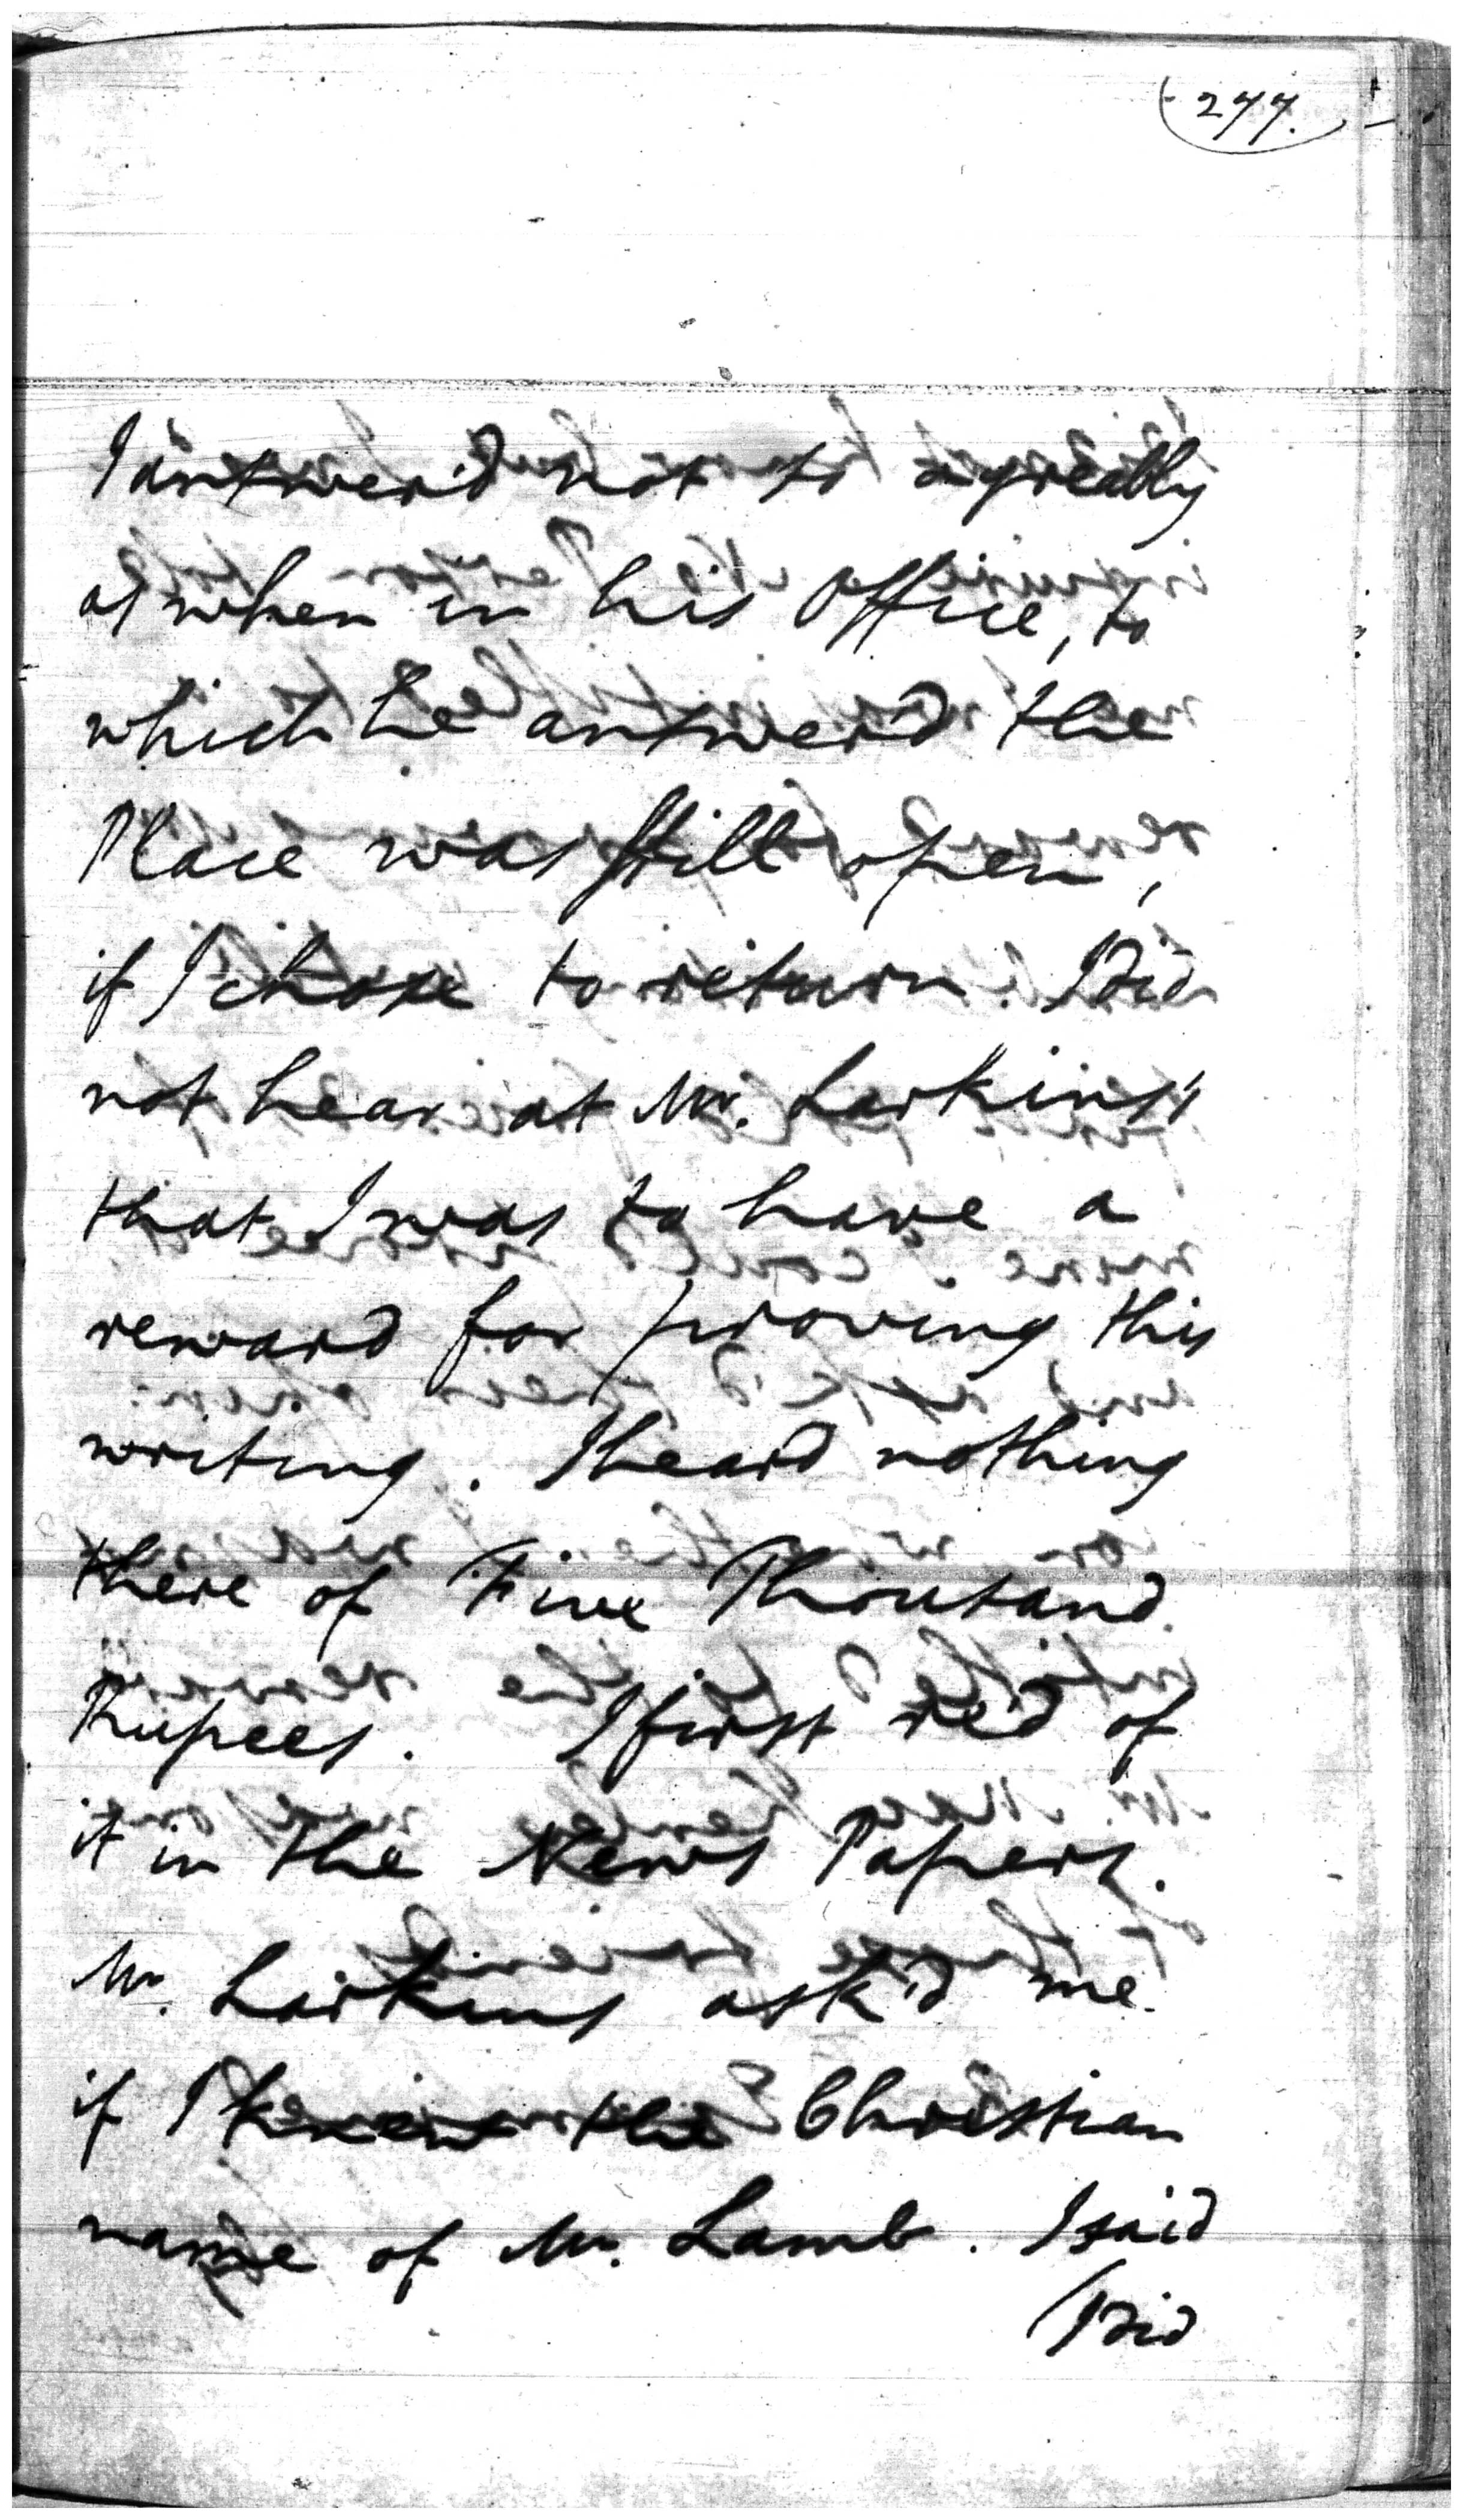 277.
I answer'd not so agreeably
as when in his Office, to
which he answer'd the
Place was still open,
if I chose to return. I did
not hear at Mr. Larkins's
that I was to have a
reward for proving this
writing. I heard nothing
there of Five Thousand
Rupees. I first re'd of
it in the News Papers.
Mr. Larkins ask'd me
if I knew the Christian
name of Mr. Lamb. I said
I did